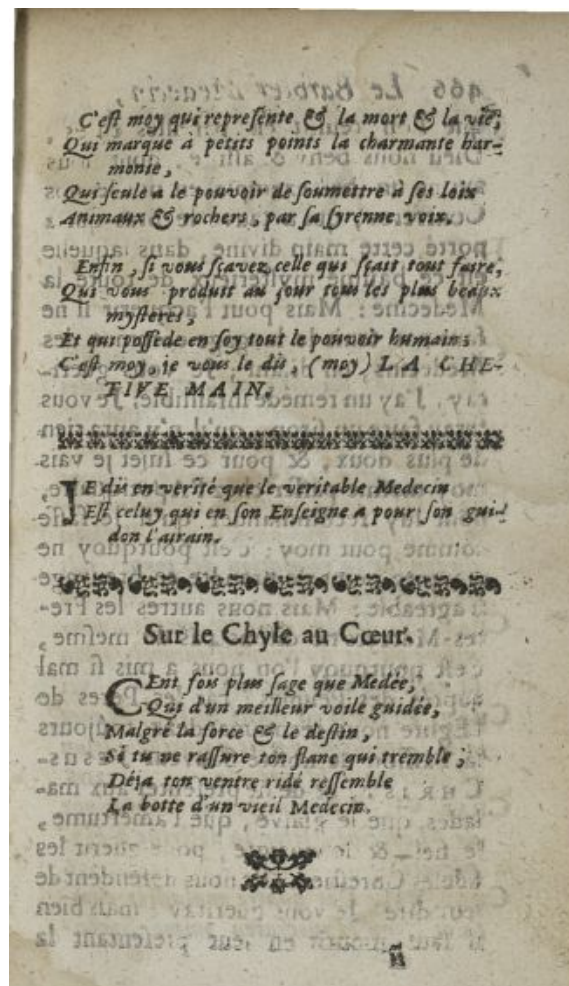 C'eſt moy qui repreſente & la mort & la vie;
Qui marque à petits points la charmante har-
monie,
Qui ſeule a le pouvoir de ſoumettre à ſes loix
Animaux & rochers, par ſa ſyrenne voix.
Enfin, ſi vous ſçavez celle qui ſçait tout faire,
Qui vous produit au jour tous les plus beaux
myſteres,
Et qui poſſède en ſoy tout le pouvoir humain;
C'eſt moy, je vous le dis, (moy) LA CHE-
TIVE MAIN.
JE dis en verité que le veritable Medecin
Eſt celuy qui en ſon Enſeigne a pour ſon gui-
don l'airain.
Sur le Chyle au Cœur.
CEnt fois plus ſage que Medée,
Qui d'un meilleur voile guidée,
Malgré la force & le deſtin,
Si tu ne raſſure ton flanc qui tremble;
Déja ton ventre ridé reſſemble
La botte d'un vieil Medecin.